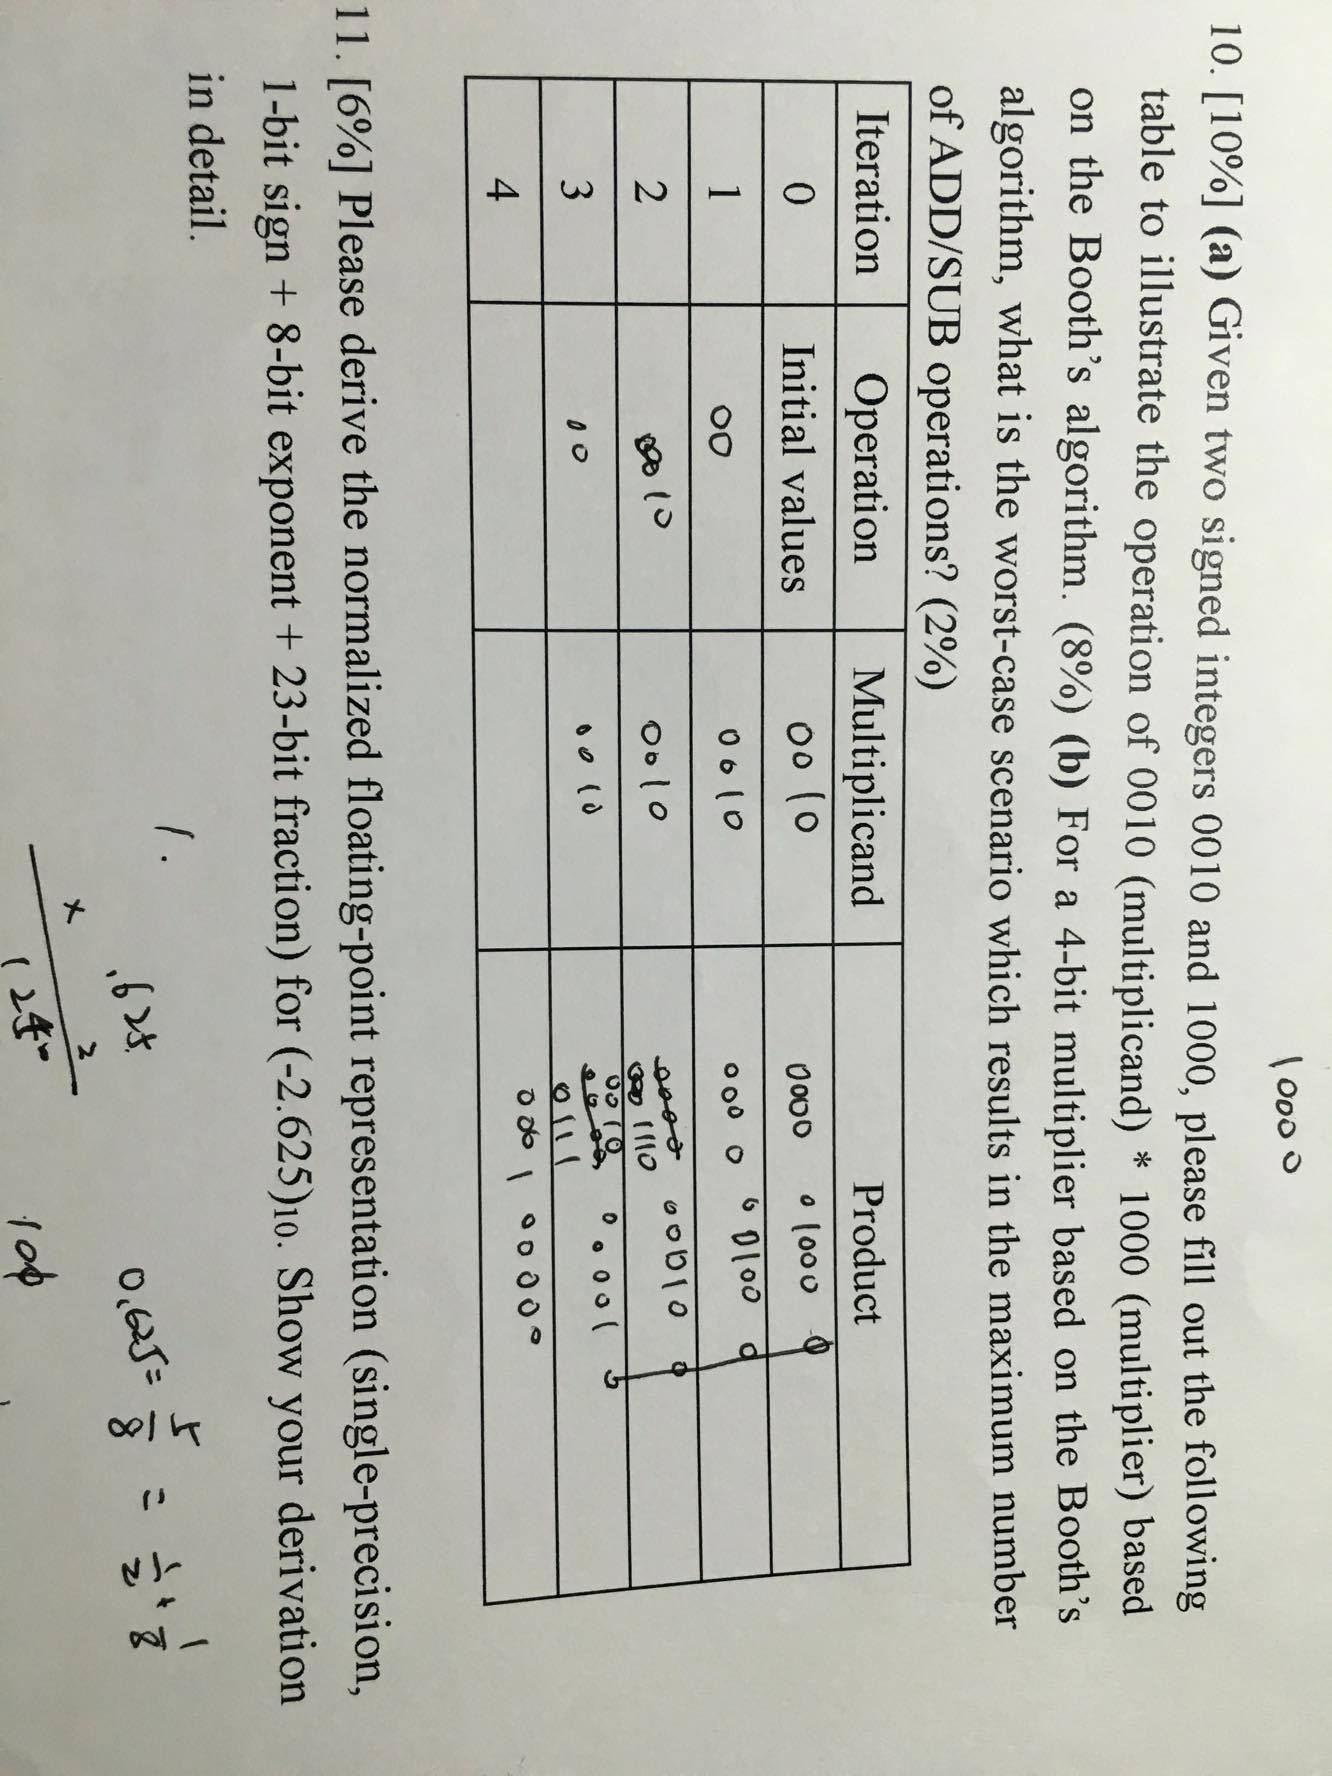 1000
10. [10%] (a) Given two signed integers 0010 and 1000, please fill out the following
table to illustrate the operation of 0010 (multiplicand) * 1000 (multiplier) based
on the Booth's algorithm. (8%) (b) For a 4-bit multiplier based on the Booth's
algorithm, what is the worst-case scenario which results in the maximum number
of ADD/SUB operations? (2%)
Iteration Operation Multiplicand Product
0 Initial values 0010 0000 01000 0
1 00 0010 0000 00100 0
2 10 0010 1110 00010 0
3 10 0010 0010 0111 00001 0
4 001 00000
11. [6%] Please derive the normalized floating-point representation (single-precision,
1-bit sign + 8-bit exponent + 23-bit fraction) for (-2.625)10. Show your derivation
in detail.
1.
.625
0.625 = 5/8 = 1/2 + 1/8
× 2
125
100